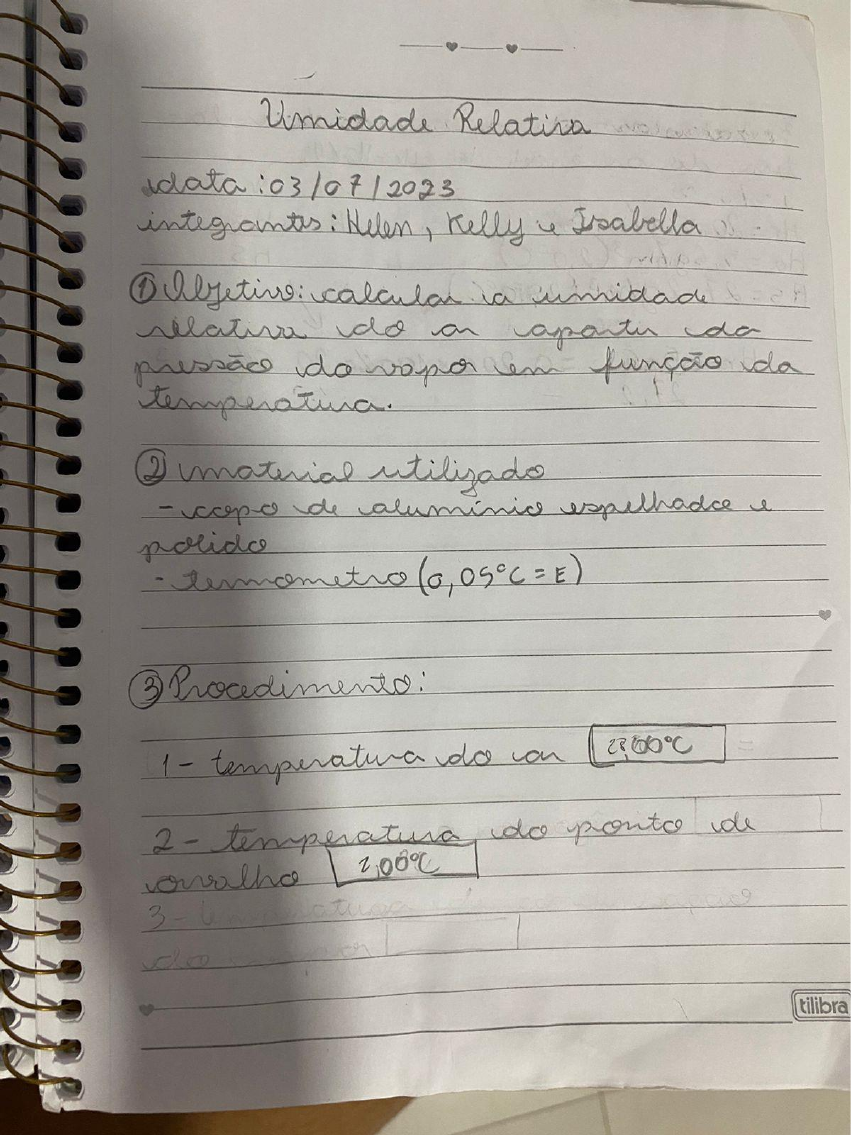 Umidade Relativa
data: 03/07/2023
integrantes: Helen, Kelly e Isabella
① Objetivo: calcular a umidade
relativa do ar apartir da
pressão do vapor em função da
temperatura.
② material utilizado
- copo de alumínio espelhado e
polido
- termometro (0,05°C = E)
③ Procedimento:
1 - temperatura do ar 23,00°C
2 - temperatura do ponto de
orvalho 2,00°C
3 -
do
tilibra